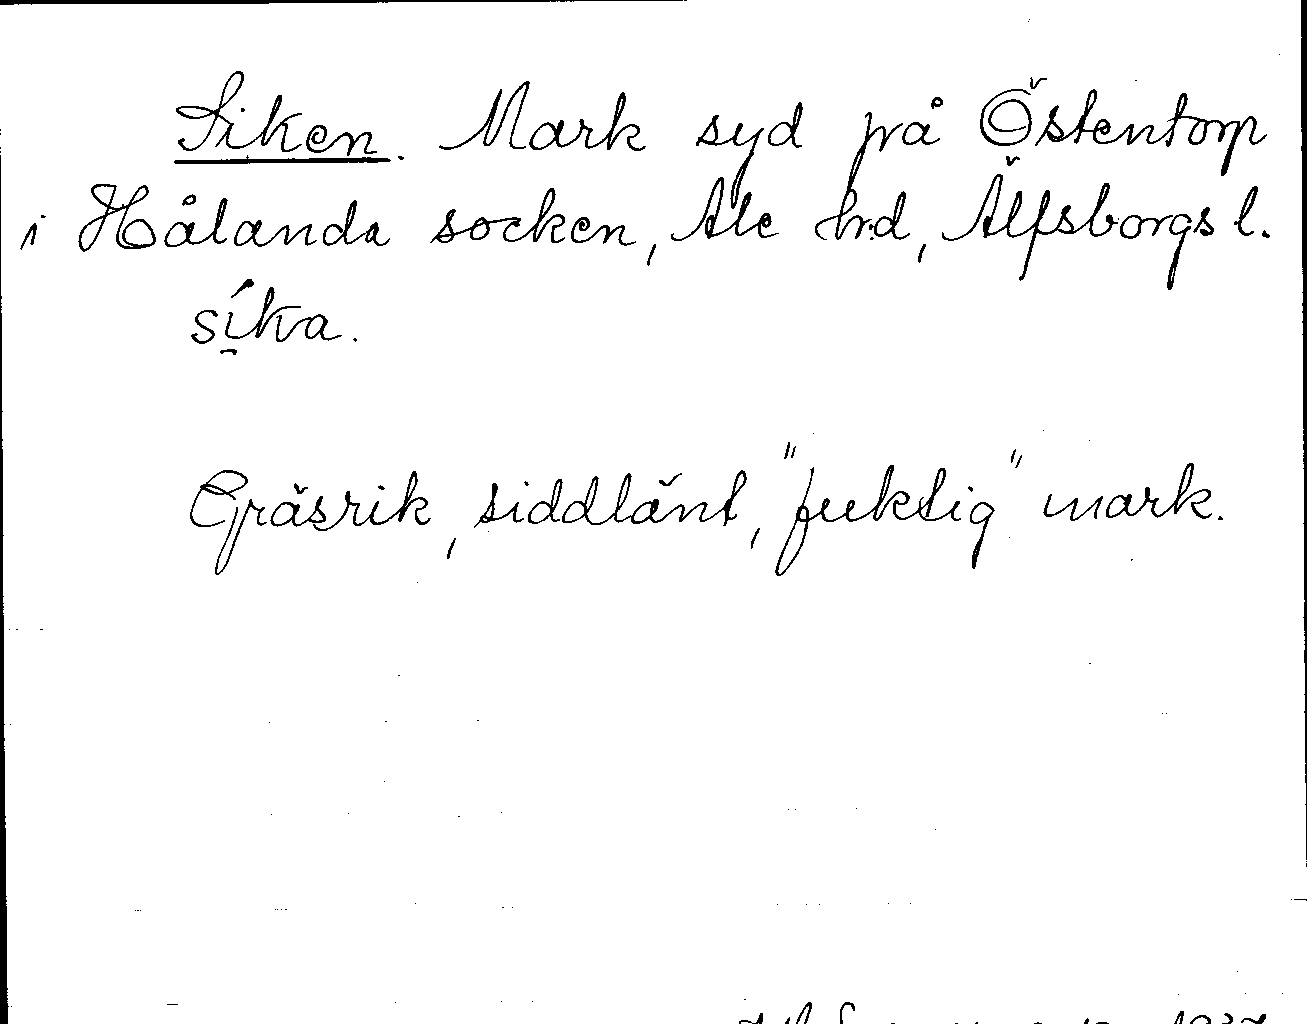 Siken. Mark syd på Östentorp
i Hålanda socken, Ale hrd, Älfsborgs l.
síka.
Gräsrik, siddlänt, "fuktig" mark.
1937